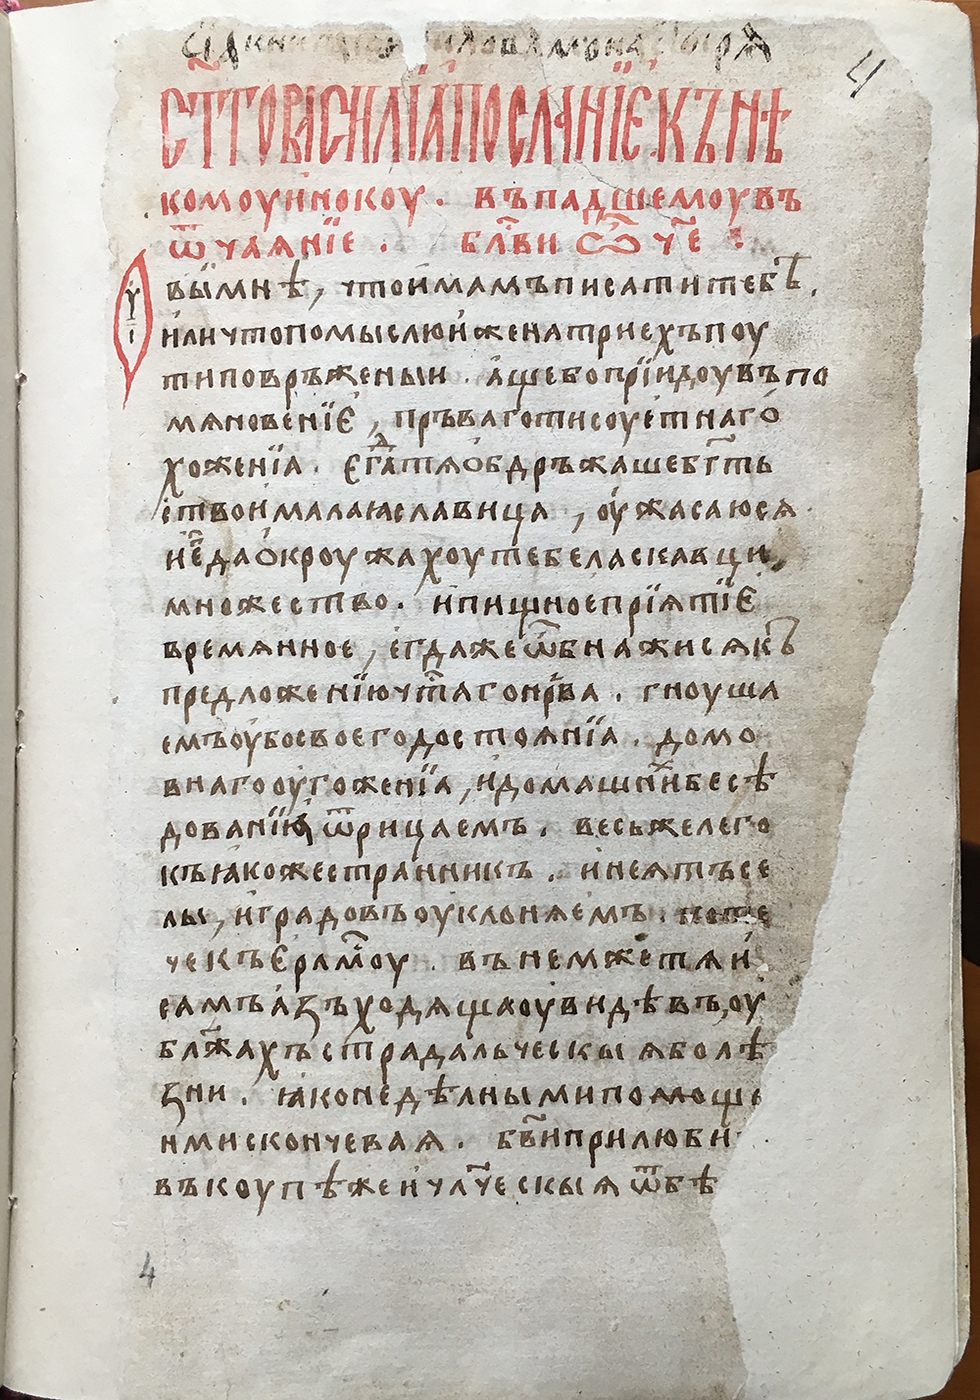 4
СТ҃ГО ВАСИЛІА ПОСЛАНЇЕ К НѢ
комоу иноко​у . въпадшемоу въ
ѿчаянїе . бл҃ви ѿч҃е :
вы́ мнѣ, что имамъ писати тебѣ .
и́ли что помыслю и́же на триехъ поу
ти повръженыи . а́ще бо прїидоу въ по
мяновенїе , пръваго ти соуетнаго́
хожения . є҆гдⷶа тя о́бдръжаше бг҃ть
ство и малаꙗ славица , оу́жасаюся .
и҆ е҆гда о́кроужахоу тебе ласкавци,
множество . и пищное прїятїе
времянное , е́гда же ѿ бнажися якъ
предложенїю ч҃тяго нр҃ва . гноуша
емъ оу́бо своего достоянїа . домо
внаго оу́гоженїа , и́ домашних бесѣ
дованїи ѿрицаемъ . весь желего
къ ꙗкоже странникъ . и неятъ се
лы , и градовъ оуклоняемъ .
че къ є҆рл҃моу . въ нем же тя и́
самъ а́зъ ходяща оувидѣвъ, оу
бл҃жахъ страдальческыя болѣ
зни . ꙗко недѣлными помощ
ими скончевая . бг҃ви прилюби
въкоупѣ же и чл҃ческыя ѿ бѣ
4